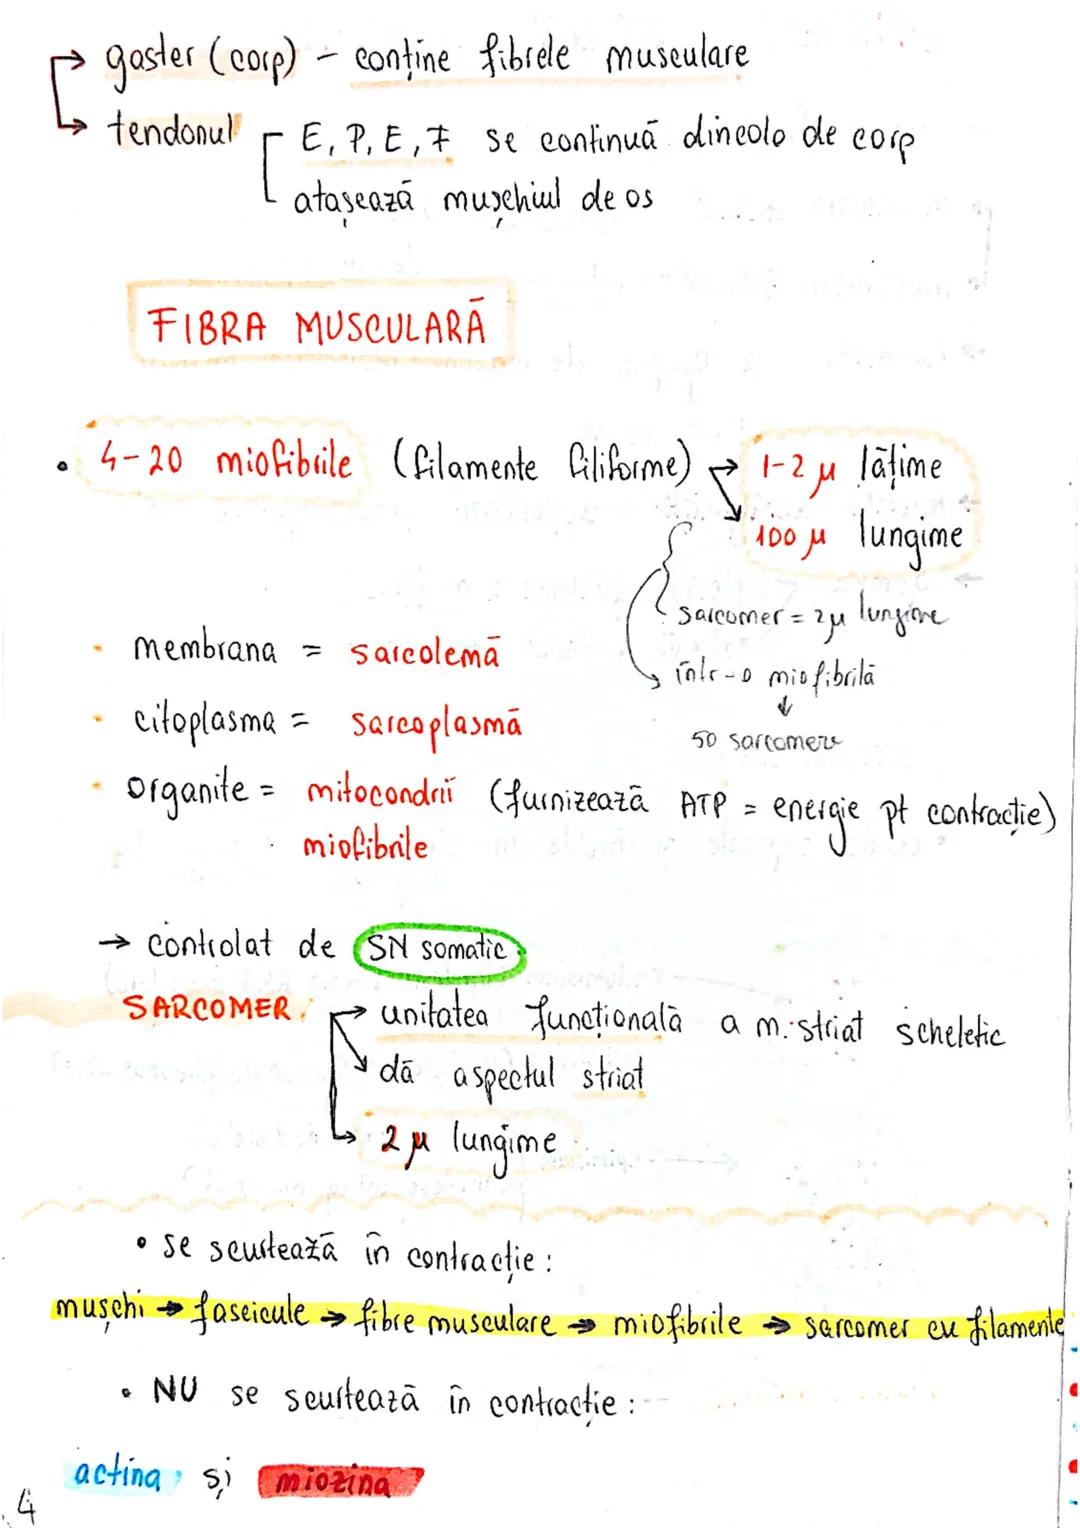 gaster (corp) - conține fibrele musculare
tendonul
E, P, E, F se continuă dincolo de corp
atașează mușchiul de os
FIBRA MUSCULARĂ
• 4-20 miofibrile (filamente filiforme) → 1-2 µ lățime
100 µ lungime
sarcomer = 2µ lungime
într-o miofibrilă
↓
50 sarcomere
• membrana = sarcolemă
• citoplasma = sarcoplasmă
• organite = mitocondrii (furnizează ATP = energie pt contracție)
miofibrile
→ controlat de SN somatic
SARCOMER → unitatea funcțională a m. striat scheletic
dă aspectul striat
2 µ lungime
• se scurtează în contracție:
mușchi → fascicule → fibre musculare → miofibrile → sarcomer cu filamente
• NU se scurtează în contracție:
actina și miozina
4